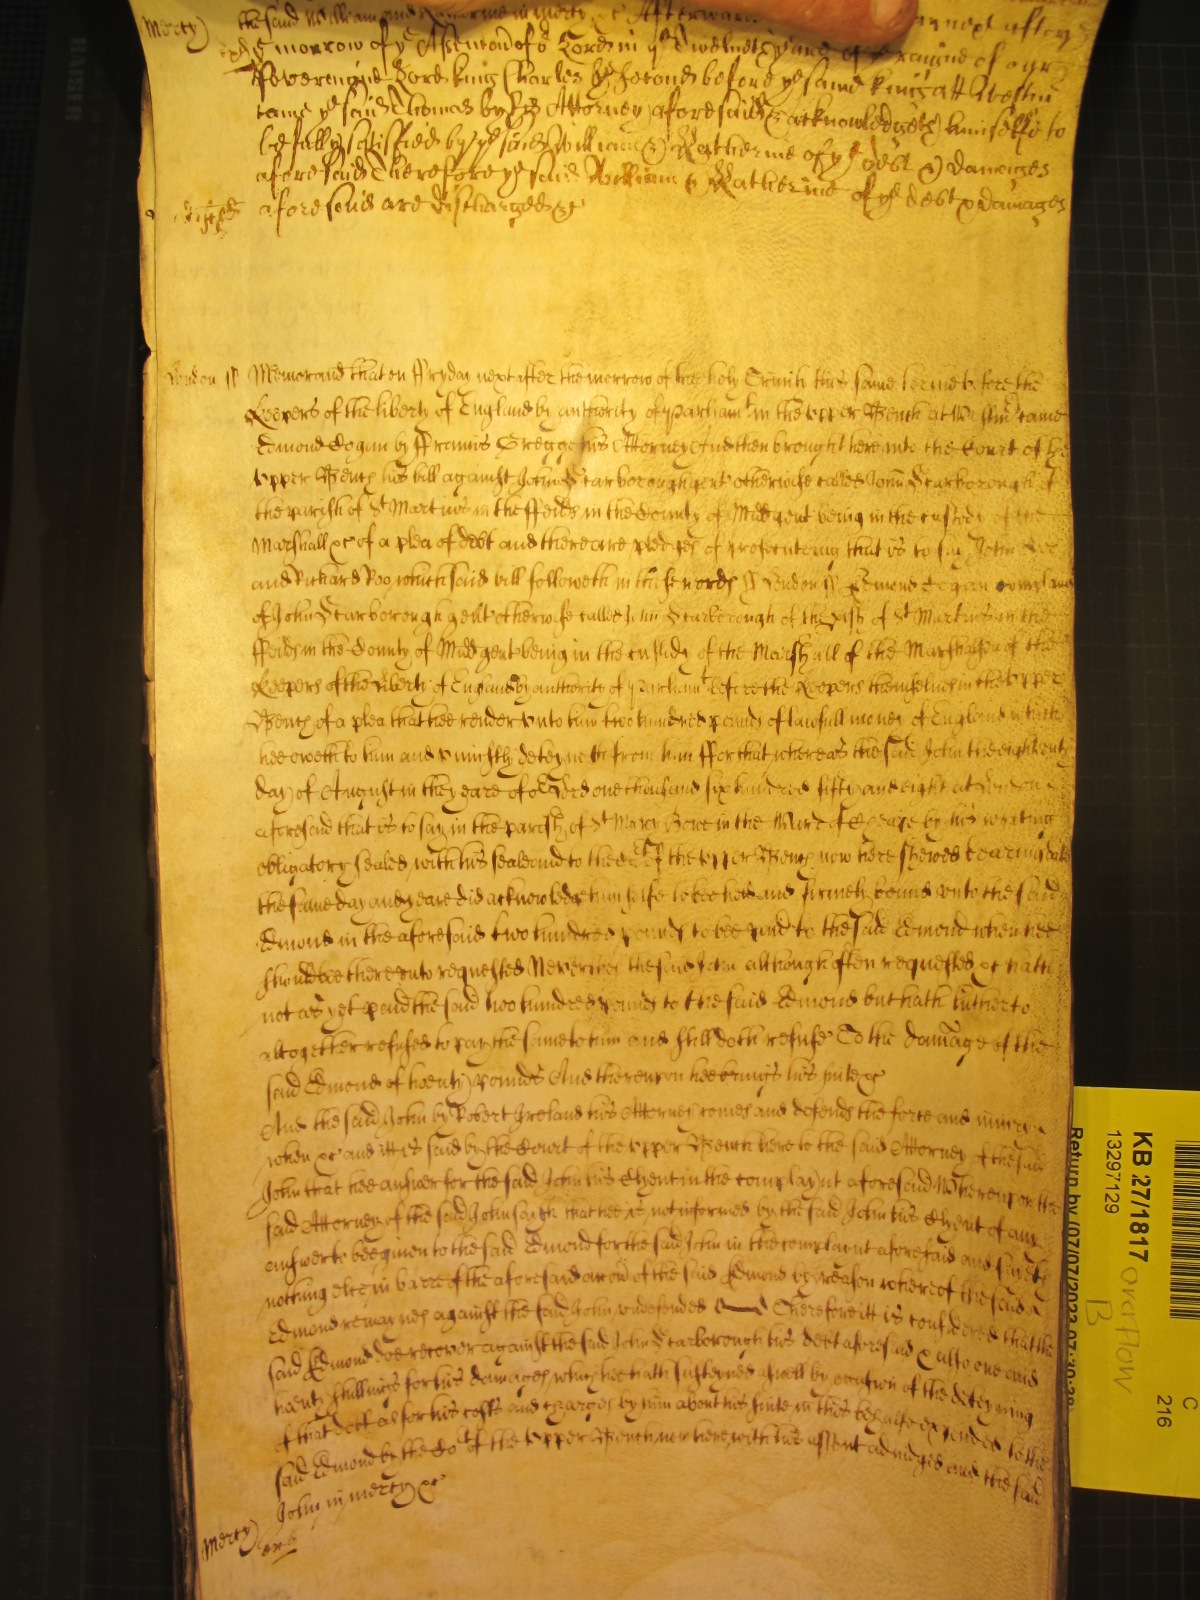 Mercy) the said William and Katherine in mercy &c Afterward next after
ye morrow of ye Ascencon of or Lord in ye Twelveth yeare of ye raigne of our
Sovereigne Lord king Charles ye second before ye same king att Westmr
came ye said Thomas by his Attorney aforesaid & acknowledgeth himselfe to
be fully satisfied by ye said William & Katherine of ye debt & damages
aforesaid Therefore ye said William & Katherine of ye debt & damages
aforesaid are discharged &c
London ss Memorand that on Fryday next after the morrow of the holy Trinity this same terme before the
Keepers of the liberty of England by authority of Parliamt in the upper Bench at Westmr came
Edmond Cogan by Francis Gregge his Attorney And then brought here into the Court of the
upper Bench his bill against John Scarborough gent otherwise called John Scarborough of
the parish of St Martins in the ffeilds in the County of Midd gent being in the custody of the
Marshall &c of a plea of debt and there are pledges of prosecuting that is to say John Doe
and Richard Roo which said bill followeth in these words ss London ss Edmond Cogan complaines
of John Scarborough gent otherwise called John Scarborough of the pish of St Martins in the
ffeilds in the County of Midd gent being in the custody of the Marshall of the Marshalsea of the
Keepers of the liberty of England by authority of Parliamt before the Keepers themselves in the upper
Bench of a plea that hee render unto him two hundred pounds of lawfull money of England which
hee oweth to him and uniustly deteyneth from him ffor that whereas the said John the eighteenth
day of August in the yeare of or Lord one thousand six hundred fifty and eight at London
aforesaid that is to say in the parish of St Mary Bowe in the Ward of Cheape by his writing
obligatory sealed with his seale and to the Court of the upper Bench now here shewed bearing date
the same day and yeare did acknowledge himselfe to bee held and firmely bound unto the said
Edmond in the aforesaid two hundred pounds to bee paid to the said Edmond when hee
should be thereunto requested Neverthel the said John although often requested &c hath
not as yet paid the said two hundred pounds to the said Edmond but hath hitherto
altogether refused to pay the same to him and still doth refuse To the damage of the
said Edmond of twenty pounds And thereupon hee brings his suite &c
And the said John by Robert Ireland his Attorney comes and defends the force and iniury
when &c and itt is said by the Court of the upper Bench here to the said Attorney of the said
John that hee answer for the said John his Clyent in the complaynt aforesaid Whereupon the
said Attorney of the said John saith that hee is not informed by the said John his Clyent of any
answer to bee given to the said Edmond for the said John in the complaint aforesaid and saith
nothing else in barre of the aforesaid accon of the said Edmond by reason whereof the said
Edmond remaynes against the said John undefended Therefore itt is considered that the
said Edmond doe recover against the said John Scarborough his debt aforesaid & also one and
twenty shillings for his damages which hee hath susteyned aswell by occasion of the deteyning
of that debt as for his costs and charges by him about his suite in this behalfe expended to the
said Edmond by the Cot of the upper Bench now here with his assent adiudged and the said
Mercy) John in mercy &c
KB 27/1817
13297129
overflow
B
C
216